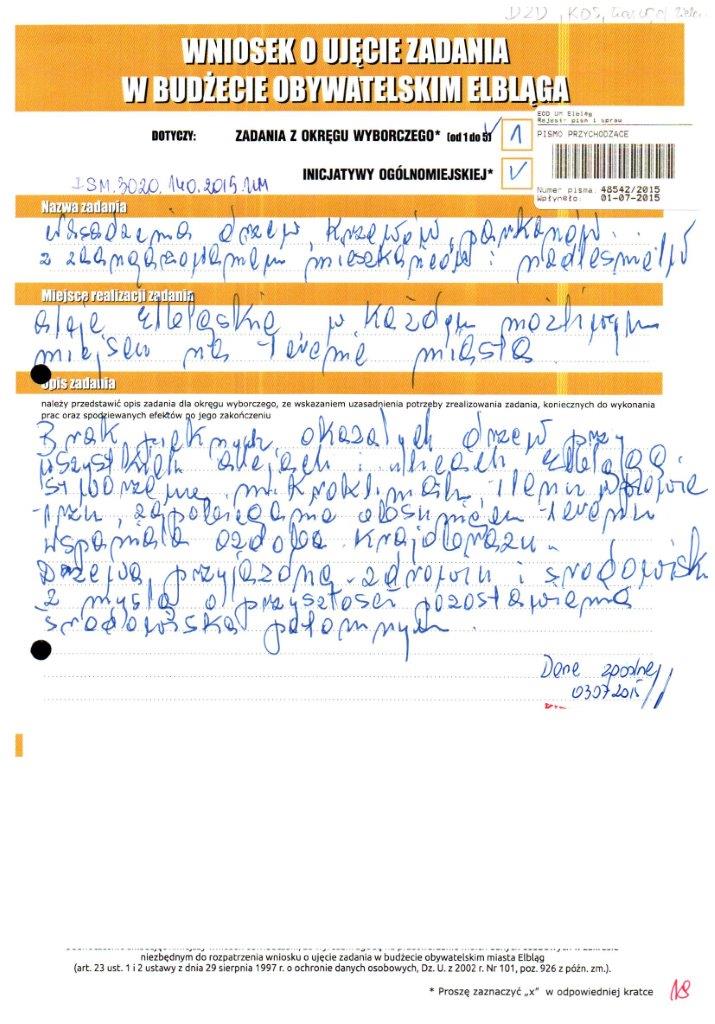 DZD, KOS,
WNIOSEK O UJĘCIE ZADANIA
W BUDŻECIE OBYWATELSKIM ELBLĄGA
DOTYCZY: ZADANIA Z OKRĘGU WYBORCZEGO* (od 1 do 5) 1
INICJATYWY OGÓLNOMIEJSKIEJ* V
EOD UM Elbląg
Rejestr pism i spraw
PISMO PRZYCHODZĄCE
Numer pisma: 48542/2015
Wpłynęło: 01-07-2015
ISM.3020.140.2015.UM
Nazwa zadania
drzew, krzewów, parkanów i
z zaangażowaniem mieszkańców i
Miejsce realizacji zadania
aleje Elbląskie, w każdym możliwym
miejscu na terenie miasta
Opis zadania
należy przedstawić opis zadania dla okręgu wyborczego, ze wskazaniem uzasadnienia potrzeby zrealizowania zadania, koniecznych do wykonania
prac oraz spodziewanych efektów po jego zakończeniu
Brak pięknych, okazałych drzew przy
wszystkich alejach i ulicach Elbląga
mikroklimatu, tlenu w
zapobiegania terenu
wspaniała ozdoba krajobrazu.
Drzewa przyjazne zdrowiu i środowisk
z myślą o przyszłości pozostawienia
środowiska potomnych.
Dane zgodne
03.07.2015
niezbędnym do rozpatrzenia wniosku o ujęcie zadania w budżecie obywatelskim miasta Elbląg
(art. 23 ust. 1 i 2 ustawy z dnia 29 sierpnia 1997 r. o ochronie danych osobowych, Dz. U. z 2002 r. Nr 101, poz. 926 z późn. zm.).
* Proszę zaznaczyć „x" w odpowiedniej kratce
18